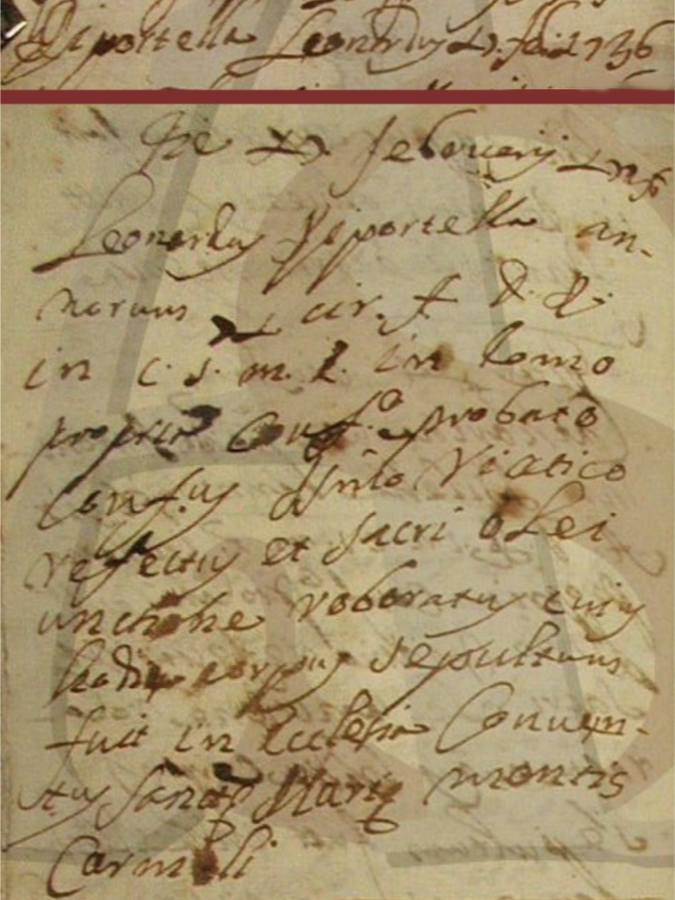 Diportella Leonardus 27. feb. 1736
Die 27 februarij 1736
Leonardus Diportella an-
norum cir. f
in c. s. m. e. in domo
propria Conf.o probato
confus Viatico
refectus et sacri olei
unctione roboratus cuius
hodie corpus sepultum
fuit in Ecclesia Conven-
tus Sanctę Marię montis
Carmeli